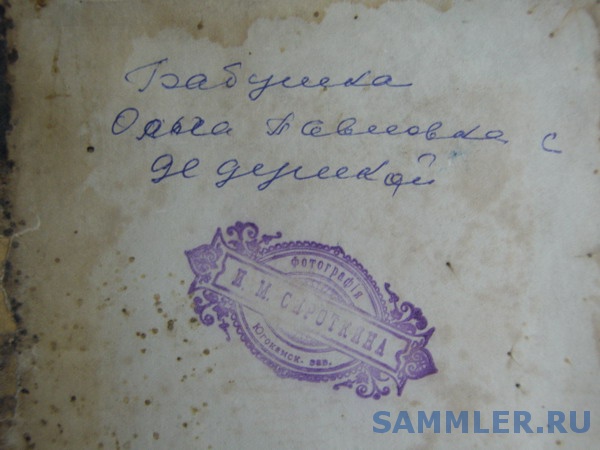 Бабушка
Ольга Павловна с
дедушкой
Фотографія
И. М. СИРОТКИНА
Югокамск. зав.
SAMMLER.RU